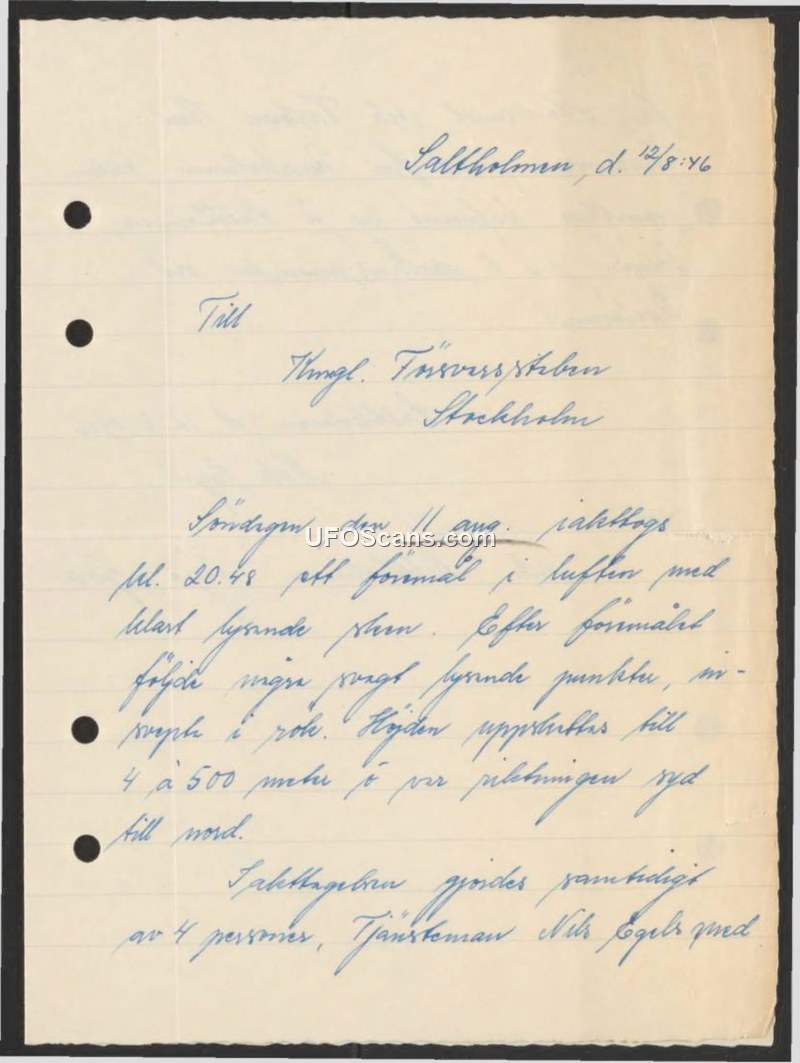 Saltholmen, d. 12/8:46
Till
Kungl. Försvarsstaben
Stockholm
Söndagen den 11 aug. iakttogs
UFOScans.com
kl. 20.48 ett föremål i luften med
klart lysande sken. Efter föremålet
följde några svagt lysande punkter, in-
svepta i rök. Höjden uppskattas till
4 à 500 meter o var riktningen syd
till nord.
Iakttagelsen gjordes samtidigt
av 4 personer, Tjänsteman Nils med